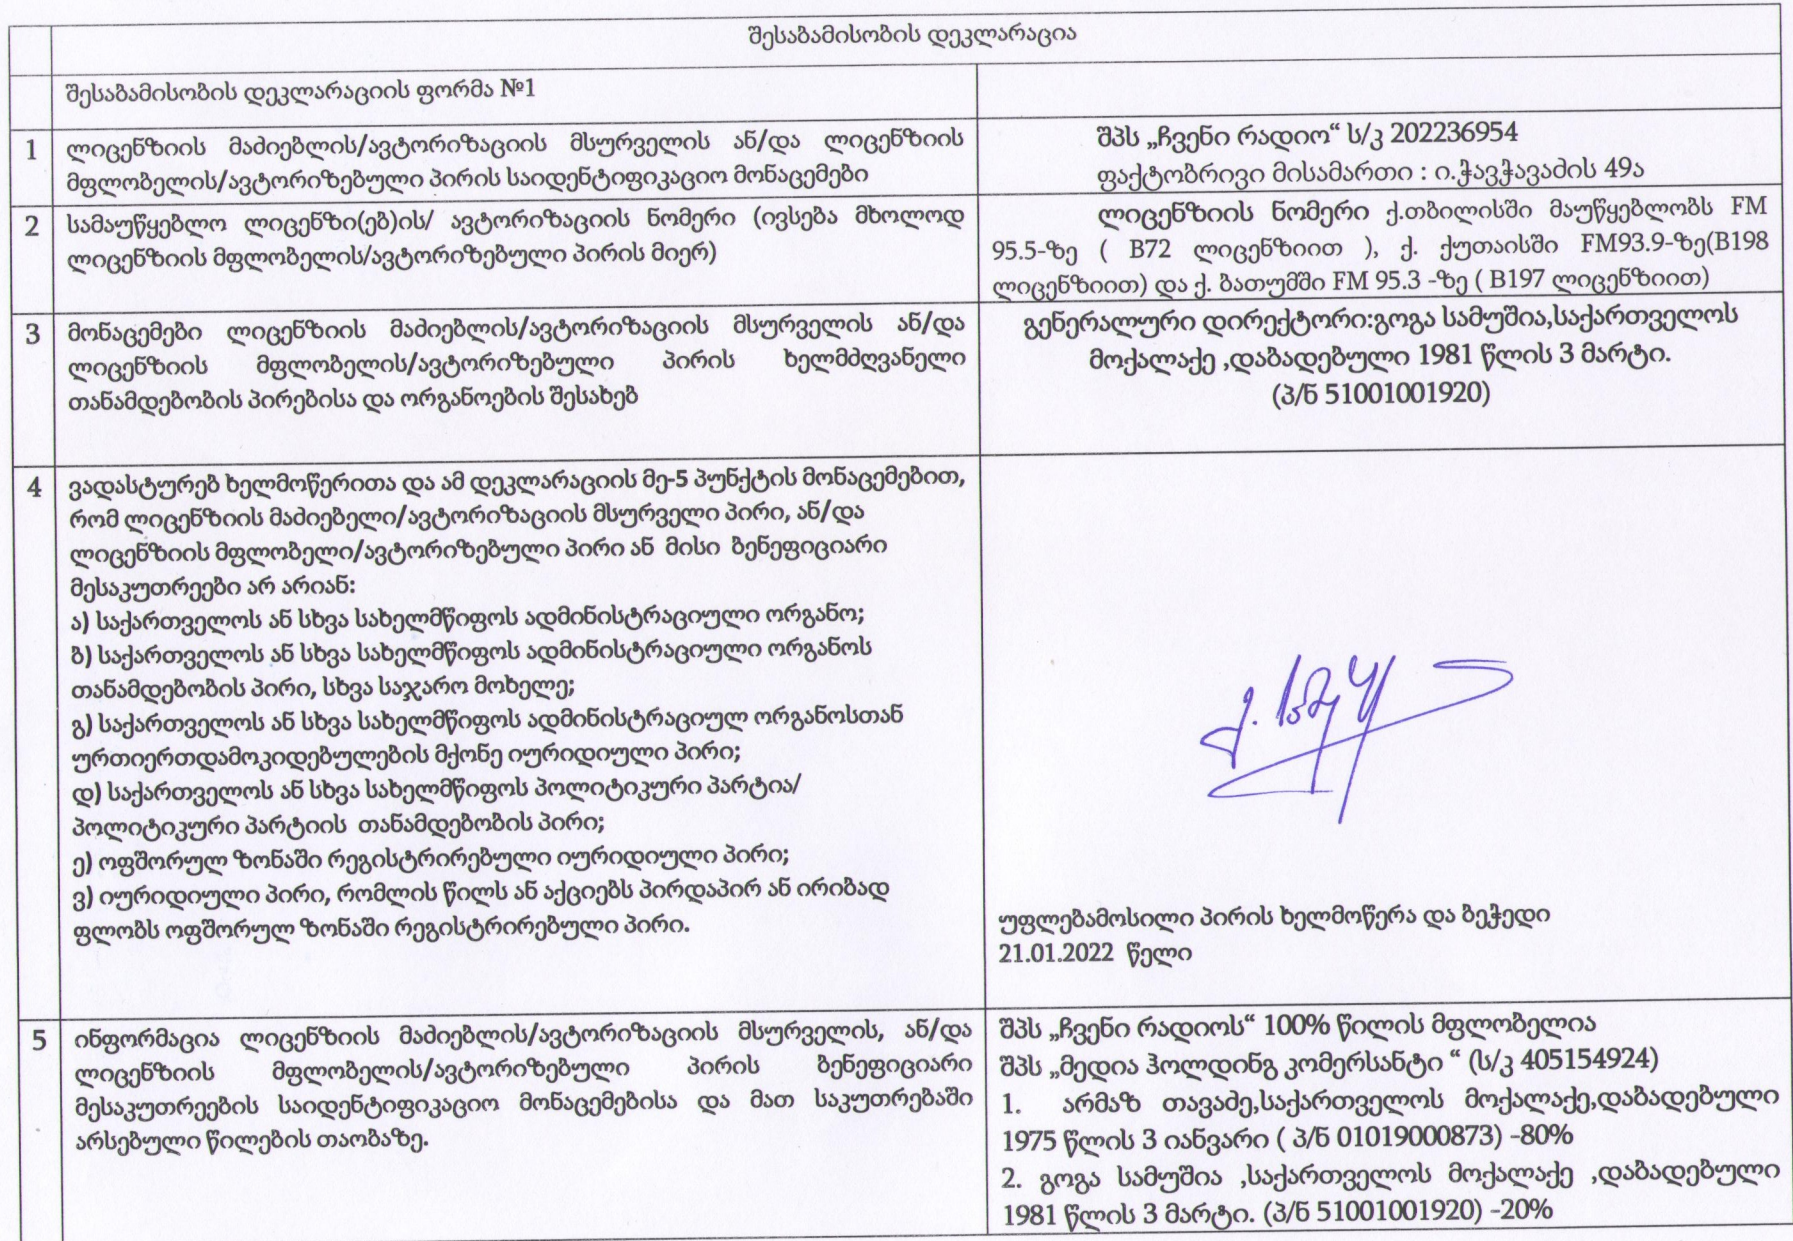 შესაბამისობის დეკლარაცია
შესაბამისობის დეკლარაციის ფორმა №1
1
ლიცენზიის მაძიებლის/ავტორიზაციის მსურველის ან/და ლიცენზიის
მფლობელის/ავტორიზებული პირის საიდენტიფიკაციო მონაცემები
შპს „ჩვენი რადიო“ ს/კ 202236954
ფაქტობრივი მისამართი : ი.ჭავჭავაძის 49ა
2
სამაუწყებლო ლიცენზი(ებ)ის/ ავტორიზაციის ნომერი (ივსება მხოლოდ
ლიცენზიის მფლობელის/ავტორიზებული პირის მიერ)
ლიცენზიის ნომერი ქ.თბილისში მაუწყებლობს FM
95.5-ზე ( B72 ლიცენზიით ), ქ. ქუთაისში FM93.9-ზე(B198
ლიცენზიით) და ქ. ბათუმში FM 95.3 -ზე ( B197 ლიცენზიით)
3
მონაცემები ლიცენზიის მაძიებლის/ავტორიზაციის მსურველის ან/და
ლიცენზიის მფლობელის/ავტორიზებული პირის ხელმძღვანელი
თანამდებობის პირებისა და ორგანოების შესახებ
გენერალური დირექტორი:გოგა სამუშია,საქართველოს
მოქალაქე ,დაბადებული 1981 წლის 3 მარტი.
(პ/ნ 51001001920)
4
ვადასტურებ ხელმოწერითა და ამ დეკლარაციის მე-5 პუნქტის მონაცემებით,
რომ ლიცენზიის მაძიებელი/ავტორიზაციის მსურველი პირი, ან/და
ლიცენზიის მფლობელი/ავტორიზებული პირი ან მისი ბენეფიციარი
მესაკუთრეები არ არიან:
ა) საქართველოს ან სხვა სახელმწიფოს ადმინისტრაციული ორგანო;
ბ) საქართველოს ან სხვა სახელმწიფოს ადმინისტრაციული ორგანოს
თანამდებობის პირი, სხვა საჯარო მოხელე;
გ) საქართველოს ან სხვა სახელმწიფოს ადმინისტრაციულ ორგანოსთან
ურთიერთდამოკიდებულების მქონე იურიდიული პირი;
დ) საქართველოს ან სხვა სახელმწიფოს პოლიტიკური პარტია/
პოლიტიკური პარტიის თანამდებობის პირი;
ე) ოფშორულ ზონაში რეგისტრირებული იურიდიული პირი;
ვ) იურიდიული პირი, რომლის წილს ან აქციებს პირდაპირ ან ირიბად
ფლობს ოფშორულ ზონაში რეგისტრირებული პირი.
უფლებამოსილი პირის ხელმოწერა და ბეჭედი
21.01.2022 წელი
5
ინფორმაცია ლიცენზიის მაძიებლის/ავტორიზაციის მსურველის, ან/და
ლიცენზიის მფლობელის/ავტორიზებული პირის ბენეფიციარი
მესაკუთრეების საიდენტიფიკაციო მონაცემებისა და მათ საკუთრებაში
არსებული წილების თაობაზე.
შპს „ჩვენი რადიოს“ 100% წილის მფლობელია
შპს „მედია ჰოლდინგ კომერსანტი “ (ს/კ 405154924)
1. არმაზ თავაძე,საქართველოს მოქალაქე,დაბადებული
1975 წლის 3 იანვარი ( პ/ნ 01019000873) -80%
2. გოგა სამუშია ,საქართველოს მოქალაქე ,დაბადებული
1981 წლის 3 მარტი. (პ/ნ 51001001920) -20%